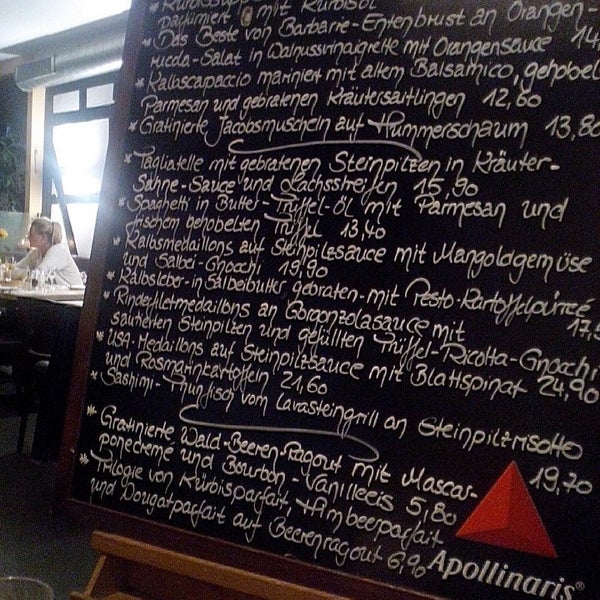 packiniert mit Kürbisöl
* Das Beste von Barbarie-Entenbrust an Orangen-
rucola-Salat in Walnussvinaigrette mit Orangensauce 14,
* Kalbscapaccio mariniert mit altem Balsamico, gehobel
Parmesan und gebratenen Kräutersaitlingen 12,60
* Gratinierte Jacobsmuscheln auf Hummerschaum 13,80
* Tagliatelle mit gebratenen Steinpilzen in Kräuter-
Sahne-Sauce und Lachsstreifen 15,90
* Spaghetti in Butter-Trüffel-öl mit Parmesan und
frischem gehobelten Trüffel 13,40
* Kalbsmedaillons auf Steinpilzsauce mit Mangoldgemüse
und Salbei-Gnochi 19,90
* Kalbsleber-in Salbeibutter gebraten-mit Pesto-Kartoffelpürree
17,5
* Rinderfiletmedaillons an Gorgonzolasauce mit
sautierten Steinpilzen und gefüllten Trüffel-Ricotta-Gnochi
24,90
* USA-Medaillons auf Steinpilzsauce mit Blattspinat
und Rosmarinkartoffeln 21,60
* Sashimi-Thunfisch vom Lavasteingrill an Steinpilzrisotto
19,70
* Gratinierte Wald-Beeren-Ragout mit Mascar-
ponecremé und Bourbon-Vanilleeis 5,80
* Trilogie von Kürbisparfait, Himbeerparfait
und Nougatparfait auf Beerenragout 6,90
Apollinaris®